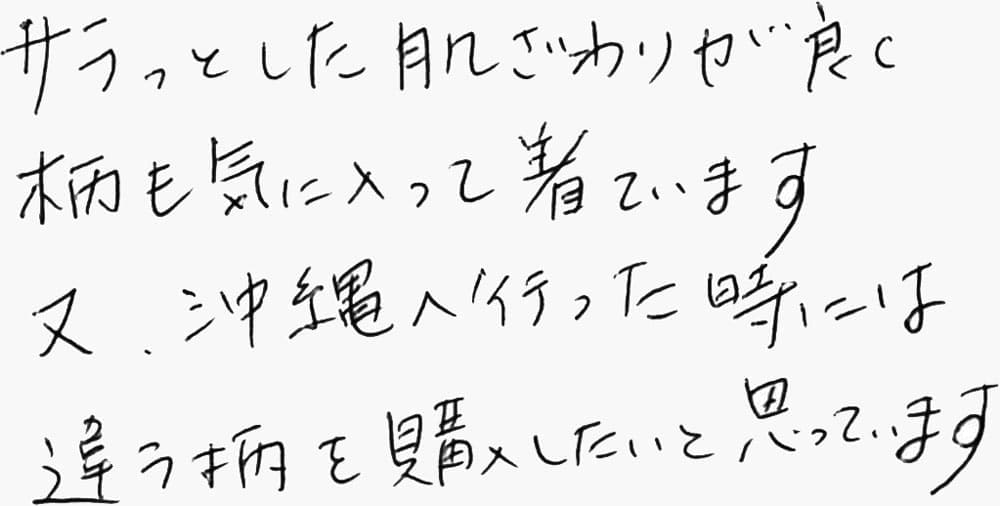 サラっとした肌ざわりが良く
柄も気に入って着ています
又、沖縄へ行った時には
違う柄を購入したいと思っています